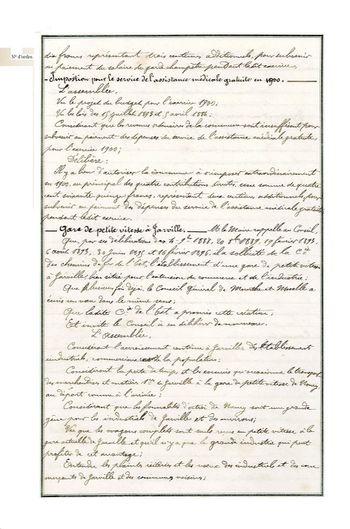 N° d'ordre
dix francs représentant trois centimes additionnels, pour subvenir
au paiement du salaire du garde champêtre pendant ledit exercice.
- Imposition pour le service de l'assistance médicale gratuite en 1900. -
L'assemblée,
Vu le projet du budget pour l'exercice 1900,
Vu les lois des 15 juillet 1893 et 5 avril 1884;
Considérant que les revenus ordinaires de la commune sont insuffisants pour
subvenir au paiement des dépenses du service de l'assistance médicale gratuite
pour l'exercice 1900;
Délibère:
Il y a lieu d'autoriser la commune à s'imposer extraordinairement
en 1900, au principal des quatre contributions directes, une somme de quatre
cent soixante francs, représentant deux centimes additionnels, pour
subvenir au paiement des dépenses du service de l'assistance médicale gratuite
pendant ledit exercice.
- Gare de petite vitesse à Jarville. - M. le Maire rappelle au Conseil,
Que, par ses délibérations des 1887, 1889, 19 février 1893,
6 août 1893, 30 juin 1895 et 16 février 1896, il a sollicité de la Cie
des chemins de fer de l'Est l'établissement d'une gare de petite vitesse
à Jarville, bien située pour l'extension du commerce et de l'industrie;
Que plusieurs fois déjà, le Conseil Général de Meurthe et Moselle a
émis un vœu dans le même sens;
Que ladite Cie de l'Est a promis cette création,
Et invite le Conseil à en délibérer de nouveau.
L'assemblée,
Considérant l'accroissement continu à Jarville des établissements
industriels, commerciaux et de la population;
Considérant la perte de temps et les ennuis qu'occasionne le transport
des marchandises et matières de Jarville à la gare de petite vitesse de Nancy,
au départ comme à l'arrivée;
Considérant que les formalités d'octroi de Nancy sont une grande
gêne pour les industriels de Jarville et des environs;
Vu que les wagons complets sont seuls reçus en petite vitesse à la
gare actuelle de Jarville et qu'il n'y a que la grande industrie qui peut
profiter de cet avantage;
Entendu les plaintes réitérées et les vœux des industriels et des com-
merçants de Jarville et des communes voisines;